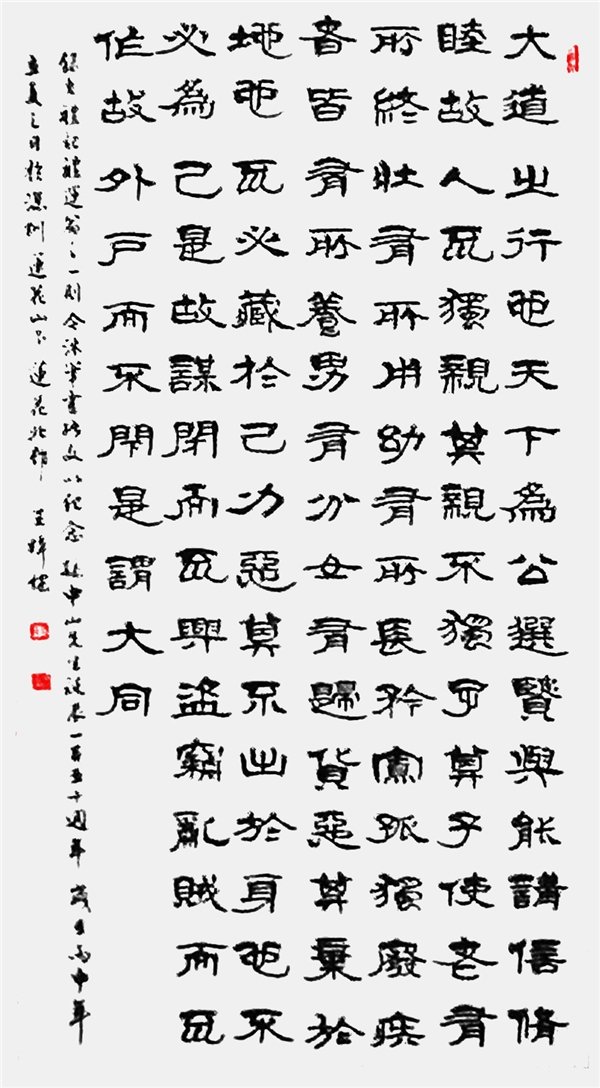 大道之行也天下為公選賢與能講信脩
睦故人不獨親其親不獨子其子使老有
所終壯有所用幼有所長矜寡孤獨廢疾
者皆有所養男有分女有歸貨惡其棄於
地也不必藏於己力惡其不出於身也不
必為己是故謀閉而不興盜竊亂賊而不
作故外戶而不閉是謂大同
錄自禮記禮運篇之一則今筆書此文以紀念孫中山先生誕辰一百五十週年歲在丙申年
立夏之日於深圳蓮花山下蓮花北邨王